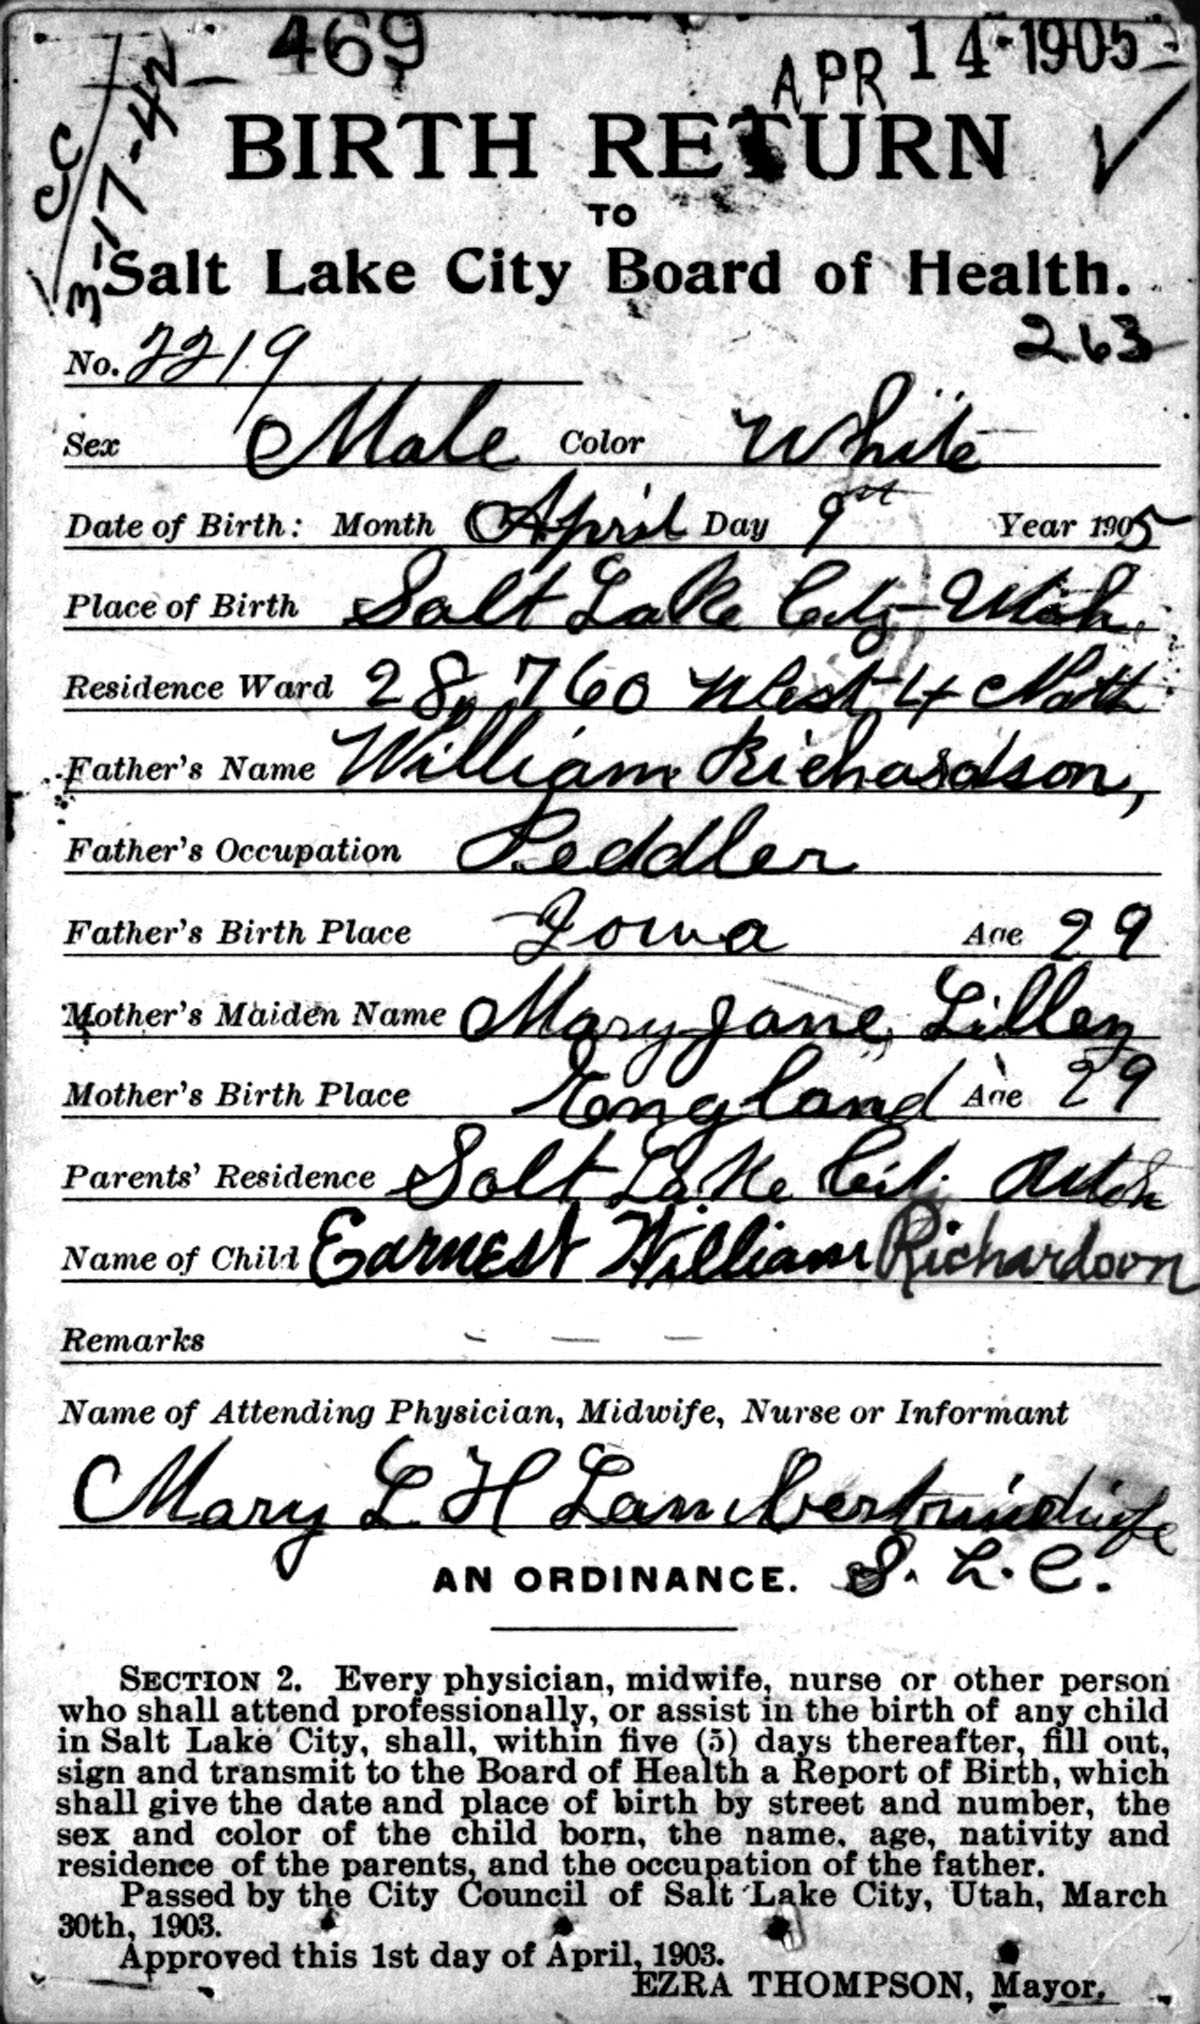 469 APR 14 1905
CC 3-17-42
BIRTH RETURN
TO
Salt Lake City Board of Health.
263
No. 2219
Sex Male Color White
Date of Birth: Month April Day 9th Year 1905
Place of Birth Salt Lake City Utah.
Residence Ward 28, 760 West 4 North
Father's Name William Richardson,
Father's Occupation Peddler
Father's Birth Place Iowa Age 29
Mother's Maiden Name Mary Jane, Lilley
Mother's Birth Place England Age 29
Parents' Residence Salt Lake Cit. Utah
Name of Child Earnest William Richardson
Remarks - — —
Name of Attending Physician, Midwife, Nurse or Informant
Mary L H Lambert midwife
AN ORDINANCE. S. L. C.
SECTION 2. Every physician, midwife, nurse or other person
who shall attend professionally, or assist in the birth of any child
in Salt Lake City, shall, within five (5) days thereafter, fill out,
sign and transmit to the Board of Health a Report of Birth, which
shall give the date and place of birth by street and number, the
sex and color of the child born, the name, age, nativity and
residence of the parents, and the occupation of the father.
Passed by the City Council of Salt Lake City, Utah, March
30th, 1903.
Approved this 1st day of April, 1903.
EZRA THOMPSON, Mayor.